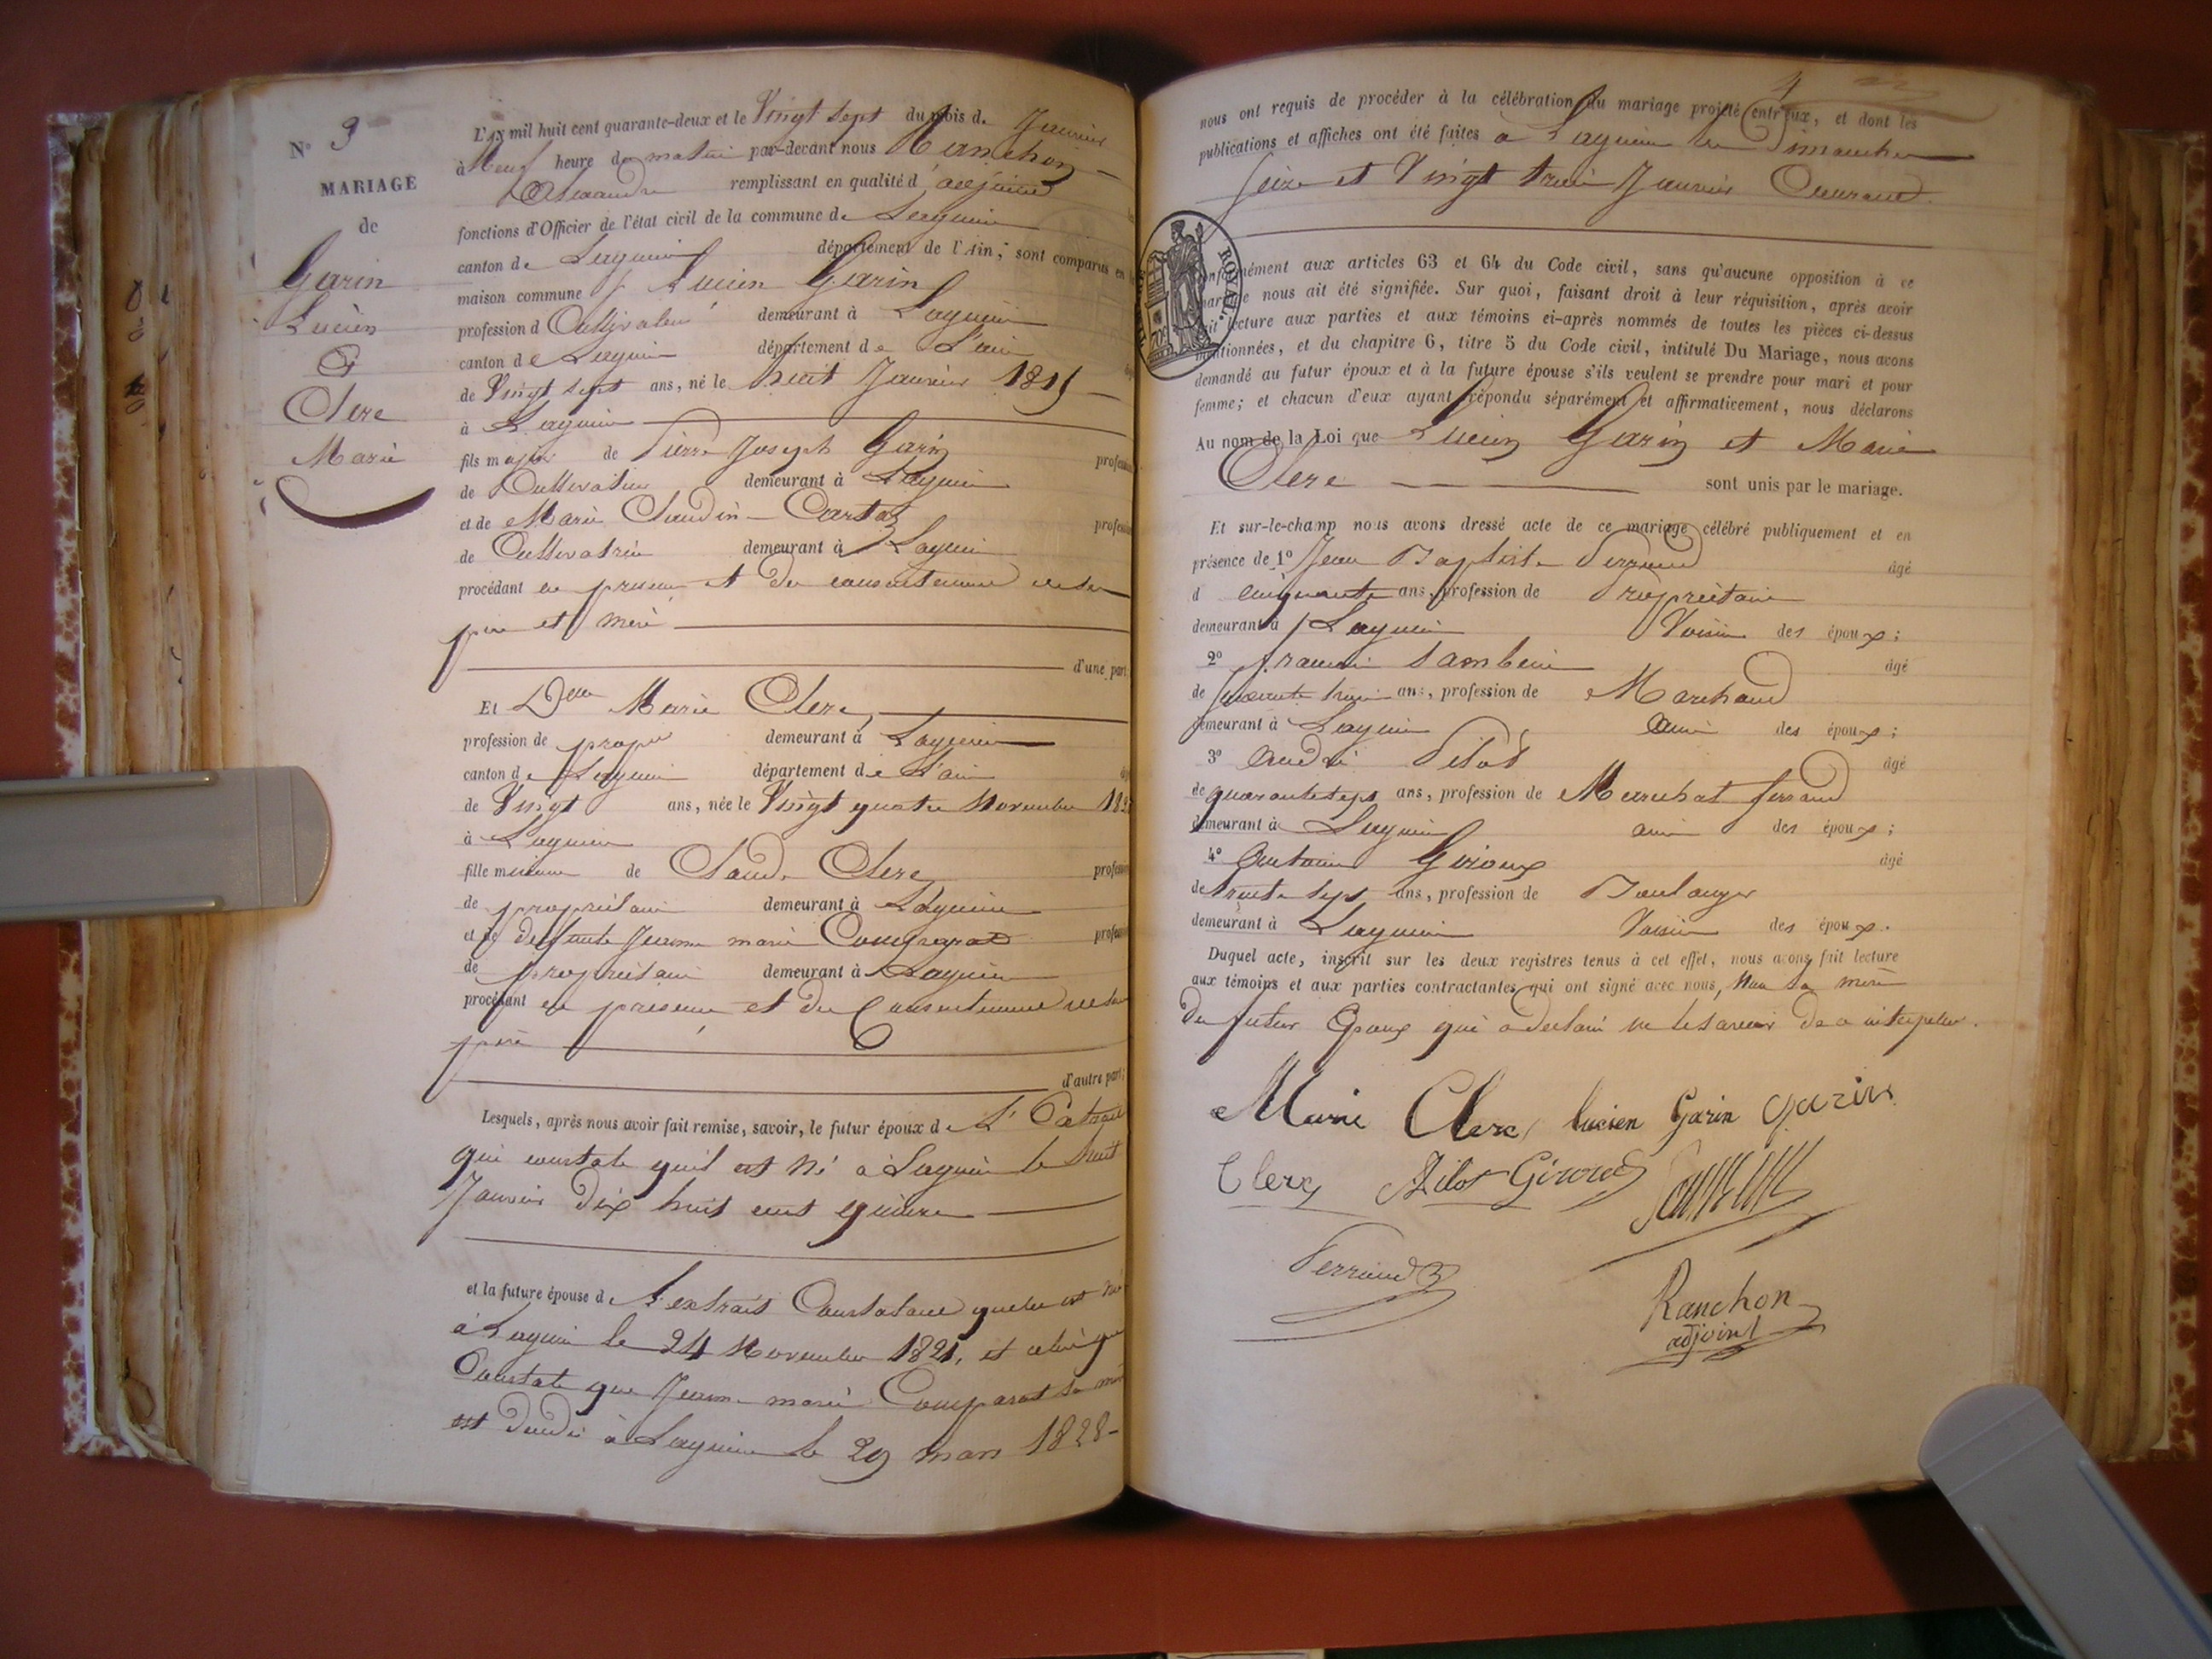 N° 3
MARIAGE
de
Garin
Lucien
&
Clerc
Marie
L'An mil huit cent quarante-deux et le Vingt sept du mois de Janvier
à Neuf heure du matin par-devant nous Ranchon
Alexandre remplissant en qualité d'adjoint
fonctions d'Officier de l'état civil de la commune de Lagnieu
canton de Lagnieu département de l'Ain, sont comparus en
maison commune Lucien Garin
profession d Cultivateur demeurant à Lagnieu
canton de Lagnieu département de L'ain
de Vingt sept ans, né le huit Janvier 1815
à Lagnieu
fils majeur de Pierre Joseph Garin profession
de Cultivateur demeurant à Lagnieu
et de Marie Claudin Cartaz profession
de Cultivatrice demeurant à Lagnieu
procédant en presence et du consentement de ses
père et mère
d'une part
Et Dlle Marie Clerc
profession de propre demeurant à Lagnieu
canton de Lagnieu département de L'ain
de Vingt ans, née le Vingt quatre Novembre 182
à Lagnieu
fille mineure de Claude Clerc profession
de propriétaire demeurant à Lagnieu
et de deffunte Jeanne marie Comparat profession
de propriétaire demeurant à Lagnieu
procédant en presence et du Consentement de son
père
d'autre part;
Lesquels, après nous avoir fait remise, savoir, le futur époux de L'Extrait
qui constate qu'il est né à Lagnieu le huit
Janvier dix huit cent quinze
et la future épouse de L'extrait Constatant quelle est né
à Lagnieu le 24 Novembre 1821, et celui qui
Constate que Jeanne marie Comparat sa mère
est décédé à Lagnieu le 29 mars 1828
4
nous ont requis de procéder à la célébration du mariage projeté entr'eux, et dont les
publications et affiches ont été faites à Lagnieu les Dimanches
Seize et Vingt trois Janvier Courant.
ROYAL.
conformément aux articles 63 et 64 du Code civil, sans qu'aucune opposition à ce
mariage nous ait été signifiée. Sur quoi, faisant droit à leur réquisition, après avoir
fait lecture aux parties et aux témoins ci-après nommés de toutes les pièces ci-dessus
mentionnées, et du chapitre 6, titre 5 du Code civil, intitulé Du Mariage, nous avons
demandé au futur époux et à la future épouse s'ils veulent se prendre pour mari et pour
femme; et chacun d'eux ayant répondu séparément et affirmativement, nous déclarons
Au nom de la Loi que Lucien Garin et Marie
Clerc sont unis par le mariage.
Et sur-le-champ nous avons dressé acte de ce mariage célébré publiquement et en
présence de 1° Jean Baptiste Perraud âgé
d cinquante ans, profession de Propriétaire
demeurant à Lagnieu Voisin des époux;
2° françois Sambein âgé
de soixante trois ans, profession de Marchand
demeurant à Lagnieu Ami des époux;
3° André Pilot âgé
de quarante sept ans, profession de Marechal ferrand
demeurant à Lagnieu ami des époux;
4° Antoine Giroux âgé
de trente sept ans, profession de Boulanger
demeurant à Lagnieu Voisin des époux.
Duquel acte, inscrit sur les deux registres tenus à cet effet, nous avons fait lecture
aux témoins et aux parties contractantes qui ont signé avec nous, Non la mère
du futur Epoux qui a declaré ne le savoir de ce interpellée.
Marie Clerc Lucien Garin Garin
Clerc Pilot Giroud
Perraud
Ranchon
adjoint